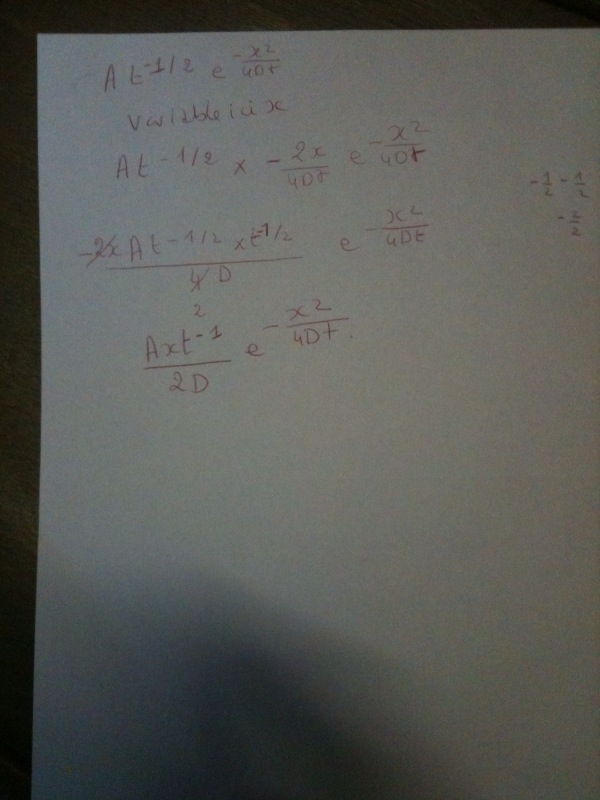 A t^-1/2 e^-x²/4Dt
Variable ici x
At^-1/2 x -2x/4Dt e^-x²/4Dt
-2x At^-1/2 x t^-1/2 / 4D e^-x²/4Dt
2
Axt^-1 / 2D e^-x²/4Dt.
-1/2 -1/2
-2/2